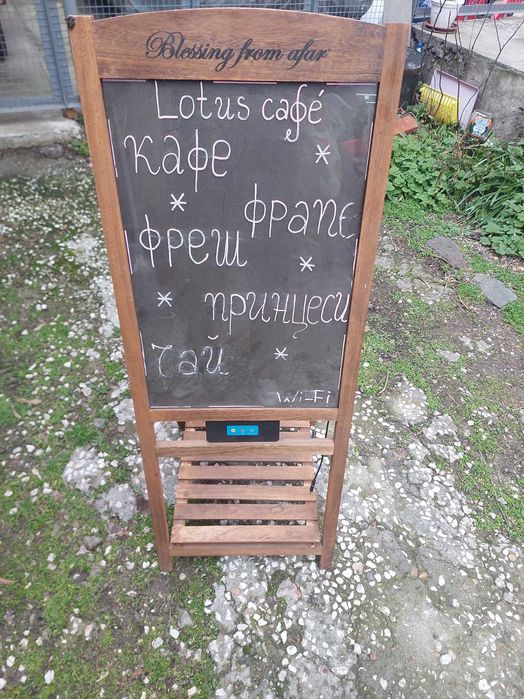 Blessing from afar
Lotus café
кафе
фрапе
фреш
принцеси
чай
Wi-Fi